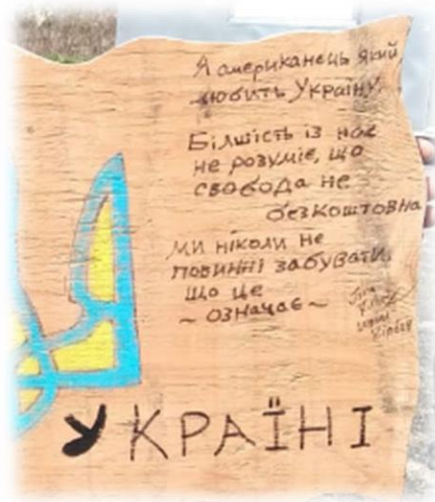 Я американець який
любить Україну.
Більшість із нас
не розуміє, що
свобода не
безкоштовна
ми ніколи не
повинні забувати,
що це
~ означає ~
УКРАЇНІ